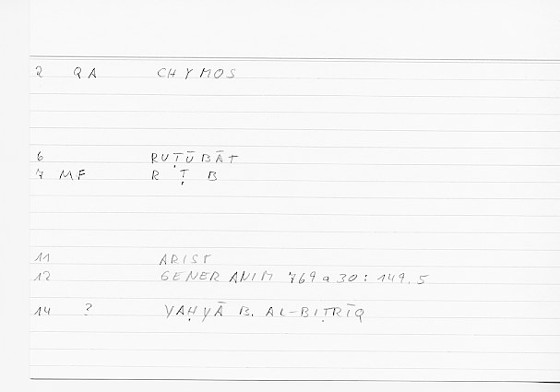 2 QA CHYMOS
6 RUṬŪBĀT
7 MF R Ṭ B
11 ARIST
12 GENER ANIM 769a30: 149.5
14 ? YAḤYĀ B. AL-BIṬRĪQ